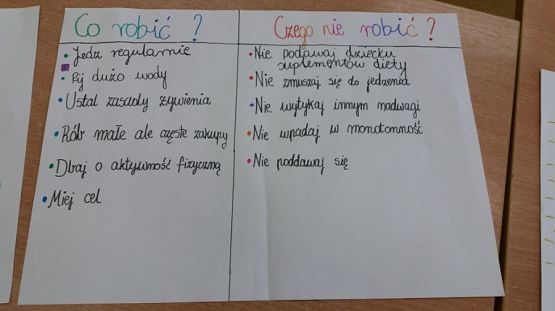 Co robić ?
• Jedz regularnie
• Pij dużo wody
• Ustal zasady żywienia
• Rób małe ale częste zakupy
• Dbaj o aktywność fizyczną
• Miej cel
Czego nie robić ?
• Nie podawaj dziecku
suplementów diety
• Nie zmuszaj się do jedzenia
• Nie wytykaj innym nadwagi
• Nie wpadaj w monotonność
• Nie poddawaj się